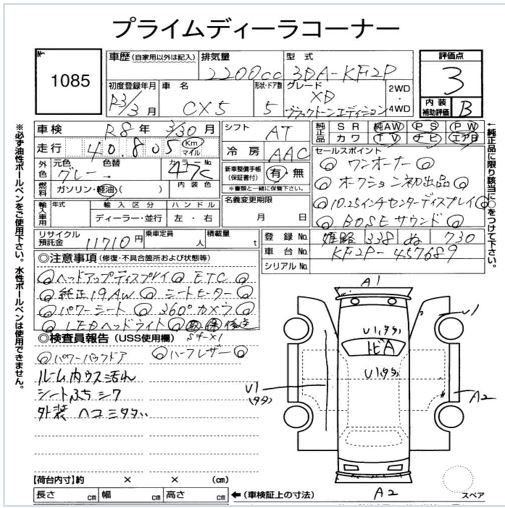 プライムディーラコーナー
1085
車歴 (自家用以外は記入)
排気量 2200cc
型式 3DA-KF2P
評価点 3
内装補助評価 B
初度登録年月 R3/3月
車名 CX5
形状・ドア数 5
グレード XD
2WD
4WD
車検 R8年3/30月
シフト AT
純正品 SR 純AW PS PW
革カワ TV ナビ エアB
走行 40,805 Km マイル
冷房 AAC
セールスポイント
外装 元色 グレー 色替 カラーNo. 47C
新車整備手帳(保証書付) 有・無
※書類と一緒に保管下さい。
◎ワンオーナー
燃料 ガソリン・軽油・( ) 内装色
名義変更期限 月 日
輸入車用 年式 輸入区分 ハンドル
ディーラー・並行 左・右
◎10.25インチセンターディスプレイ
◎BOSEサウンド
リサイクル預託金 11710円 乗車定員 人 積載量 t
登録No 姫路 338 ぬ 730
車台No KF2P-457689
シリアルNo
◎注意事項 (修復・不具合箇所および状態等)
◎ヘッドアップディスプレイ ◎ETC
◎純正19AW ◎シートヒーター
◎パワーシート ◎360°カメラ
◎LEDヘッドライト
◎検査員報告 (USS使用欄)
◎パワーバックドア ◎ハーフレザー
ルーム内ウス汚れ
外装
【荷台内寸】約 × × (cm)
長さ cm 幅 cm 高さ cm ←(車検証上の寸法)
A1
U1
U1
U1
U1
A2
A2
スペア
※必ず油性ボールペンをご使用下さい。水性ボールペンは使用できません。